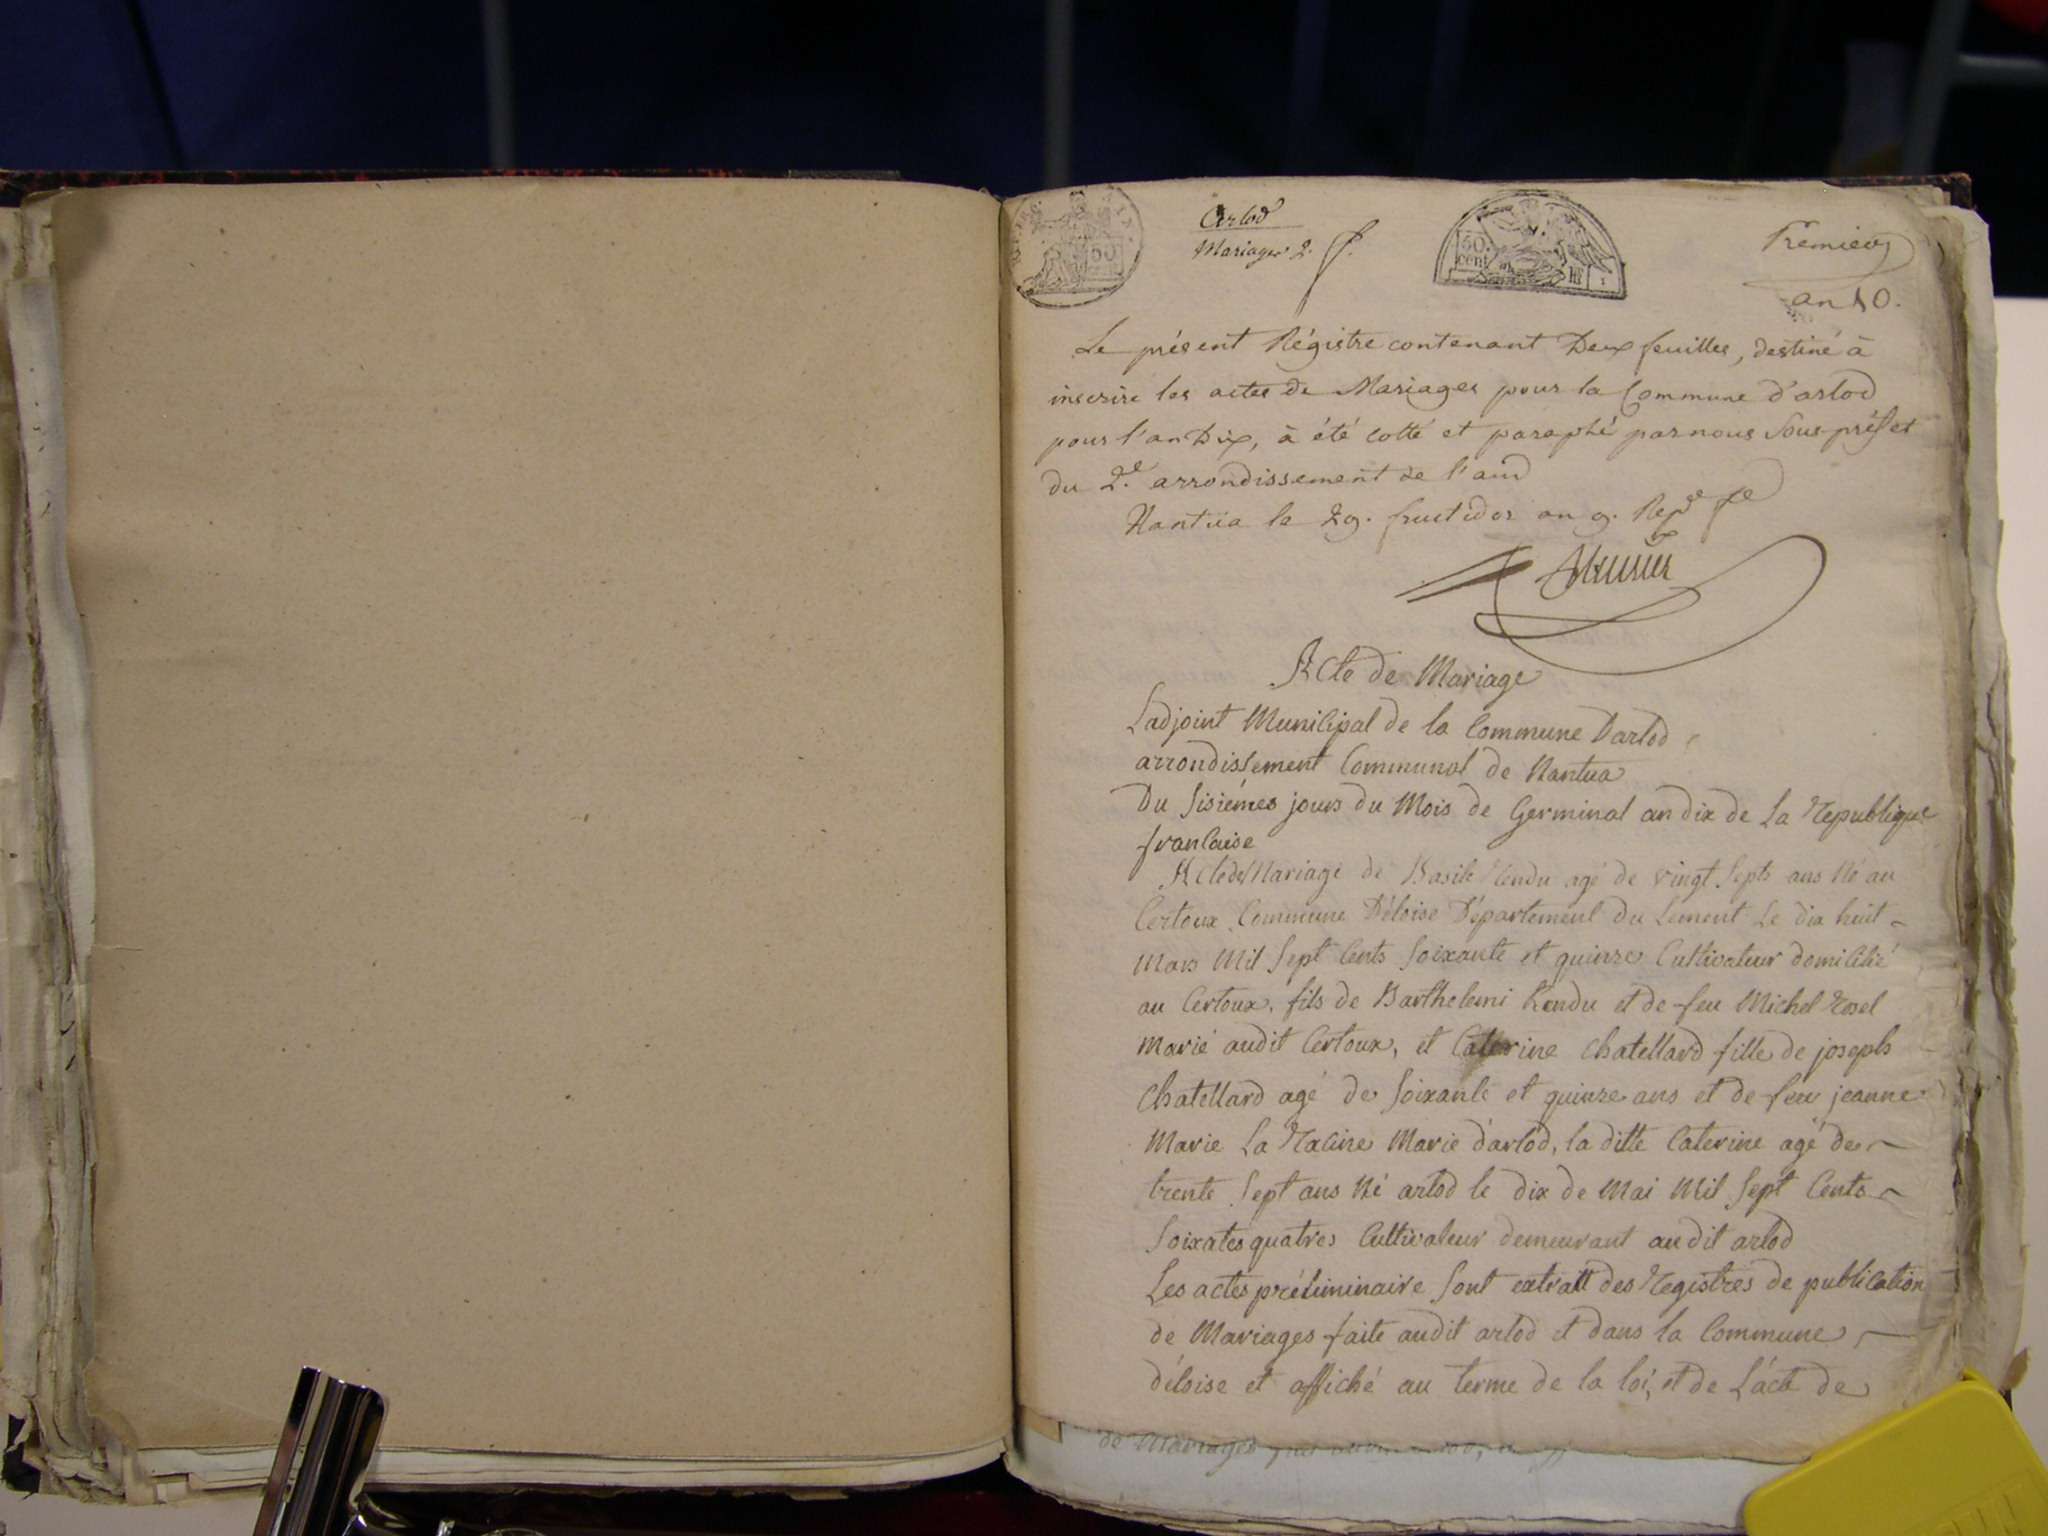 Arlod
Mariages 2.
50
50
cent
Premier
an 10.
Le présent Régistre contenant Deux feuilles, destiné à
inscrire les actes de Mariages pour la Commune d'arlod
pour l'an Dix, à été cotté et paraphé par nous Sous-préfet
du 2.e arrondissement de l'ain
Nantua le 29. fructidor an 9. Rep.e fse
Acte de Mariage
Ladjoint Municipal de la Commune Darlod
arrondissement Communal de Nantua
Du Sisiémes jours du Mois de Germinal an dix de La Republique
francaise
Acte de Mariage de Basile Rendu agé de vingt Septs ans Né au
Certoux Commune Déloise Département du Lement Le dix huit
Mars Mil Sept Cents Soixante et quinze Cultivateur domicilié
au Certoux, fils de Barthelemi Rendu et de feu Michel Rosel
Marié audit Certoux, et Caterine Chatellard fille de joseph
Chatellard agé de Soixante et quinze ans et de feu jeanne
Marie La Racine Marie d'arlod, la ditte Caterine agé de
trente Sept ans Né arlod le dix de Mai Mil Sept Cents
Soixates quatres Cultivateur demeurant audit arlod
Les actes préliminaire Sont extrait des Registres de publication
de Mariages faite audit arlod et dans la Commune
déloise et affiché au terme de la loi, et de L'acte de
de Mariages